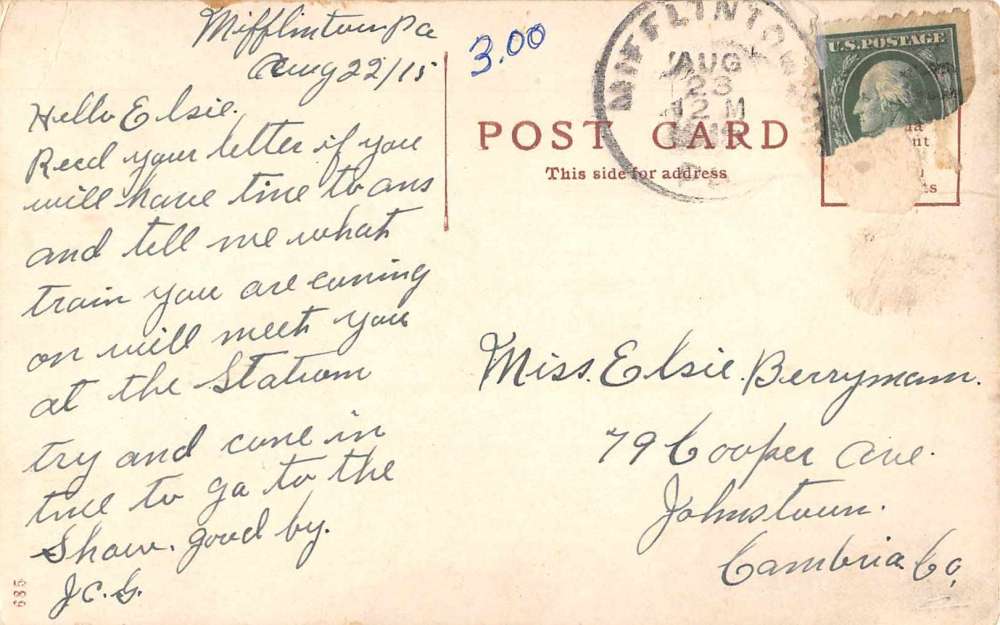 Mifflintown Pa
Aug 22/15
Hello Elsie.
Recd your letter if you
will have time to ans
and tell me what
train you are coming
on will meet you
at the Station
try and come in
time to go to the
Show. good by.
J.C.G.
685
3.00
MIFFLINTOWN
AUG
23
12 M
PA
U.S. POSTAGE
POST CARD
This side for address
Miss. Elsie. Berryman.
79 Cooper Ave.
Johnstown.
Cambria Co,